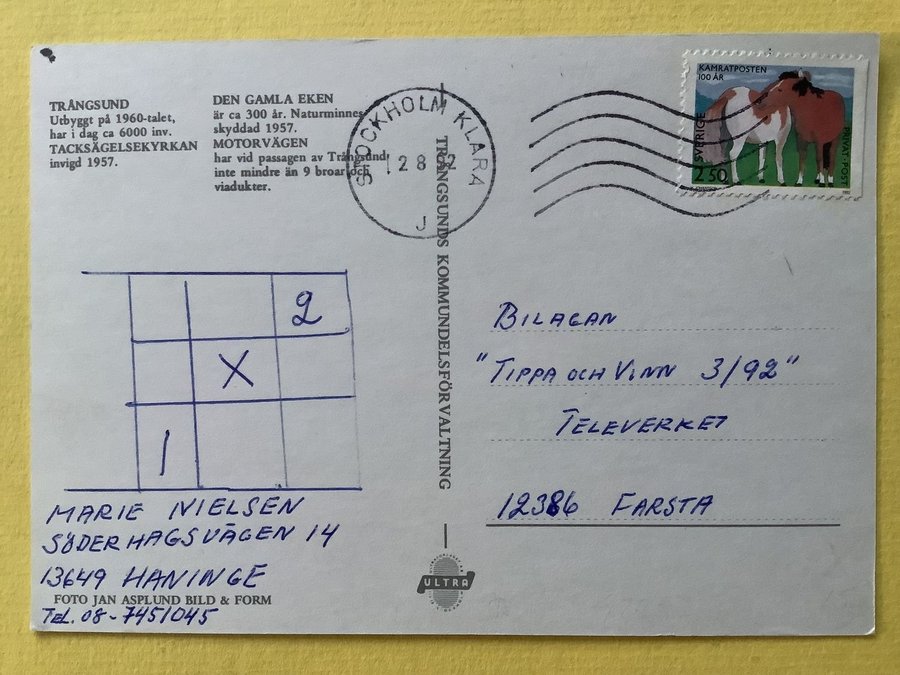 TRÅNGSUND
Utbyggt på 1960-talet,
har i dag ca 6000 inv.
TACKSÄGELSEKYRKAN
invigd 1957.
DEN GAMLA EKEN
är ca 300 år. Naturminnes-
skyddad 1957.
MOTORVÄGEN
har vid passagen av Trångsund
inte mindre än 9 broar och
viadukter.
STOCKHOLM KLARA
12 8
J
KAMRATPOSTEN
100 ÅR
SVERIGE
2.50
PRIVAT-POST
TRÅNGSUNDS KOMMUNDELSFÖRVALTNING
2
X
1
BILAGAN
"TIPPA OCH VINN 3/92"
TELEVERKET
12386 FARSTA
MARIE NIELSEN
SÖDERHAGSVÄGEN 14
13649 HANINGE
FOTO JAN ASPLUND BILD & FORM
TEL. 08-7451045
ULTRA